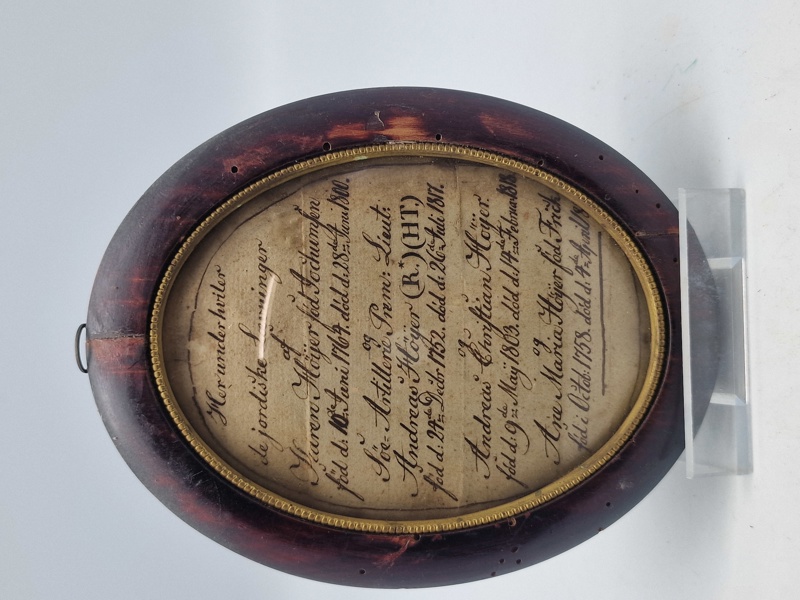 Her under hviler
de jordiske Levninger
af
Karen Höÿer föd Jochumsen
föd d: 10de Juni 1764. död d: 28de Juni 1800.
og
Söe-Artillerie Prem: Lieut:
Andreas Höÿer (R.*)(HT.)
föd d: 24de Decbr 1752. död d: 26de Juli 1817.
og
Andreas Christian Höÿer
föd d: 9de Maÿ 1803. död d: 14de Februar 1818.
og
Ane Maria Höÿer föd Frich
föd i Octob: 1758. död d: 4de April 18